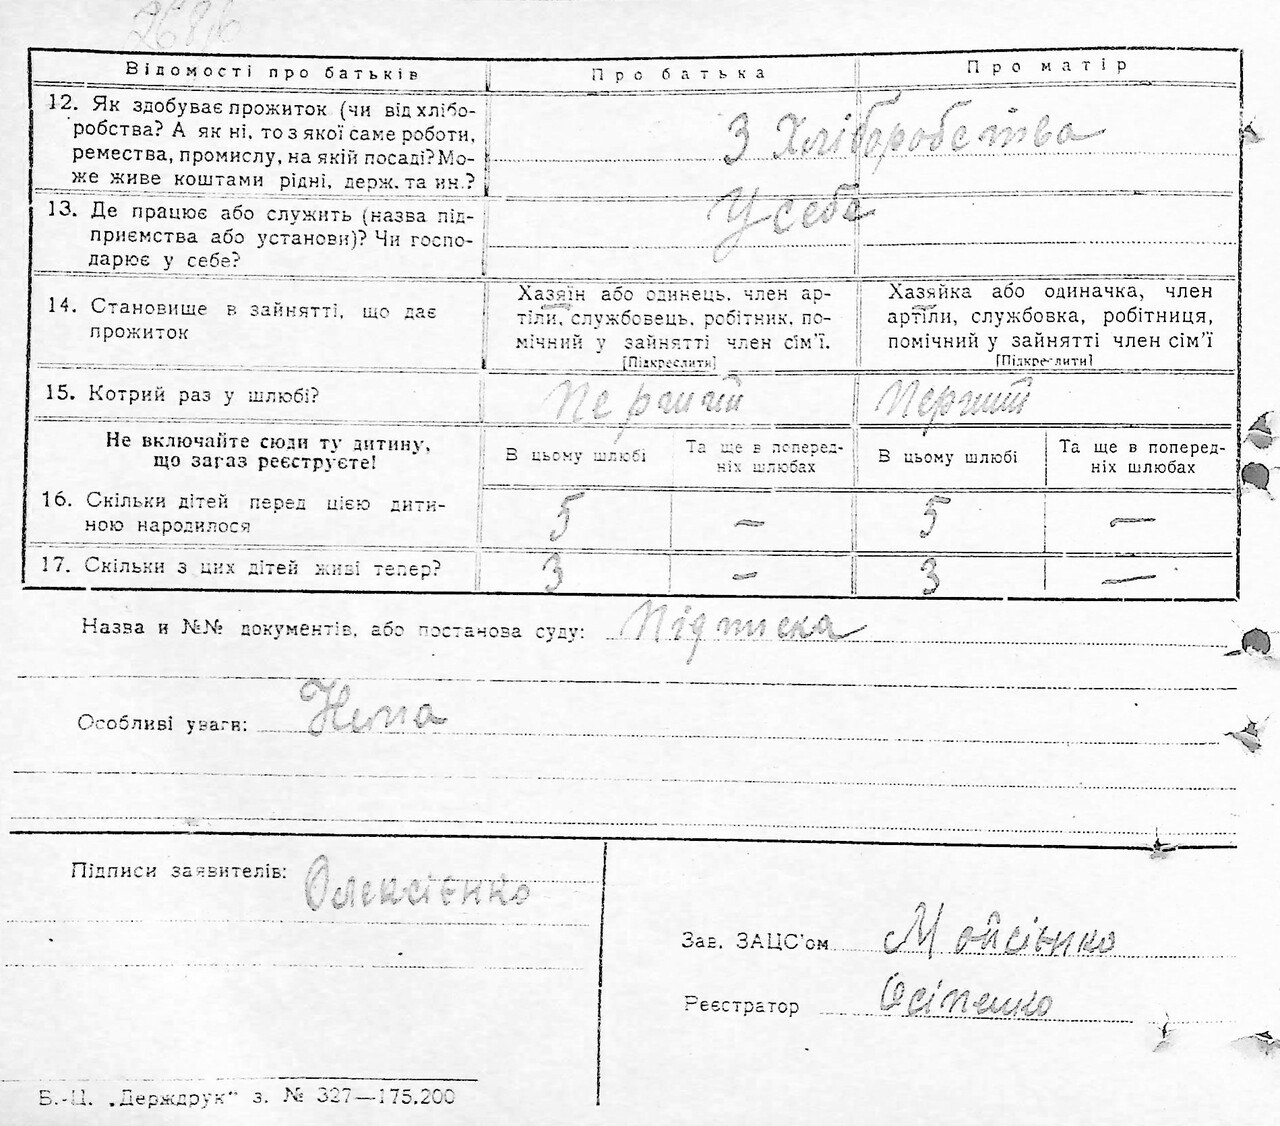 26896
Відомості про батьків Про батька Про матір
12. Як здобуває прожиток (чи від хлібо-
робства? А як ні, то з якої саме роботи,
ремества, промислу, на якій посаді? Мо-
же живе коштами рідні, держ. та ин.?
З Хліборобства
13. Де працює або служить (назва під-
приємства або установи)? Чи госпо-
дарює у себе?
У себе
14. Становище в зайнятті, що дає
прожиток
Хазяїн або одинець, член ар-
тіли, службовець, робітник, по-
мічний у зайнятті член сім'ї.
[Підкреслити]
Хазяйка або одиначка, член
артіли, службовка, робітниця,
помічний у зайнятті член сім'ї
[Підкреслити]
15. Котрий раз у шлюбі? Перший Перший
Не включайте сюди ту дитину,
що загаз реєструєте!
В цьому шлюбі
Та ще в поперед-
ніх шлюбах
В цьому шлюбі
Та ще в поперед-
ніх шлюбах
16. Скільки дітей перед цією дити-
ною народилося
5 — 5 —
17. Скільки з цих дітей живі тепер? 3 — 3 —
Назва и №№ документів, або постанова суду: Підписка
Особливі уваги: Нема
Підписи заявителів: Олексієнко
Зав. ЗАЦС'ом Мойсієнко
Реєстратор Осіпенко
Б.-Ц. „Держдрук" з. № 327—175.200